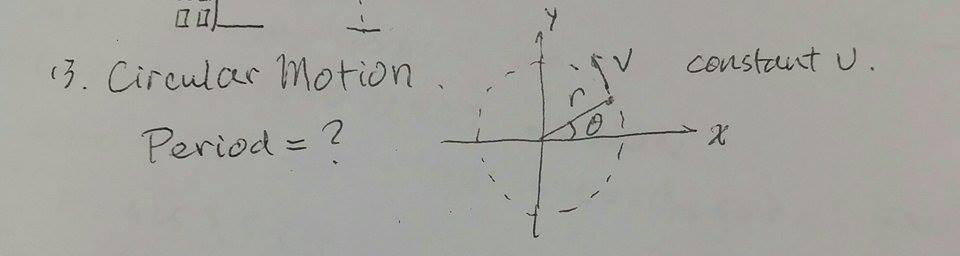 13. Circular Motion.
Period = ?
y
V
r
θ
x
constant v.